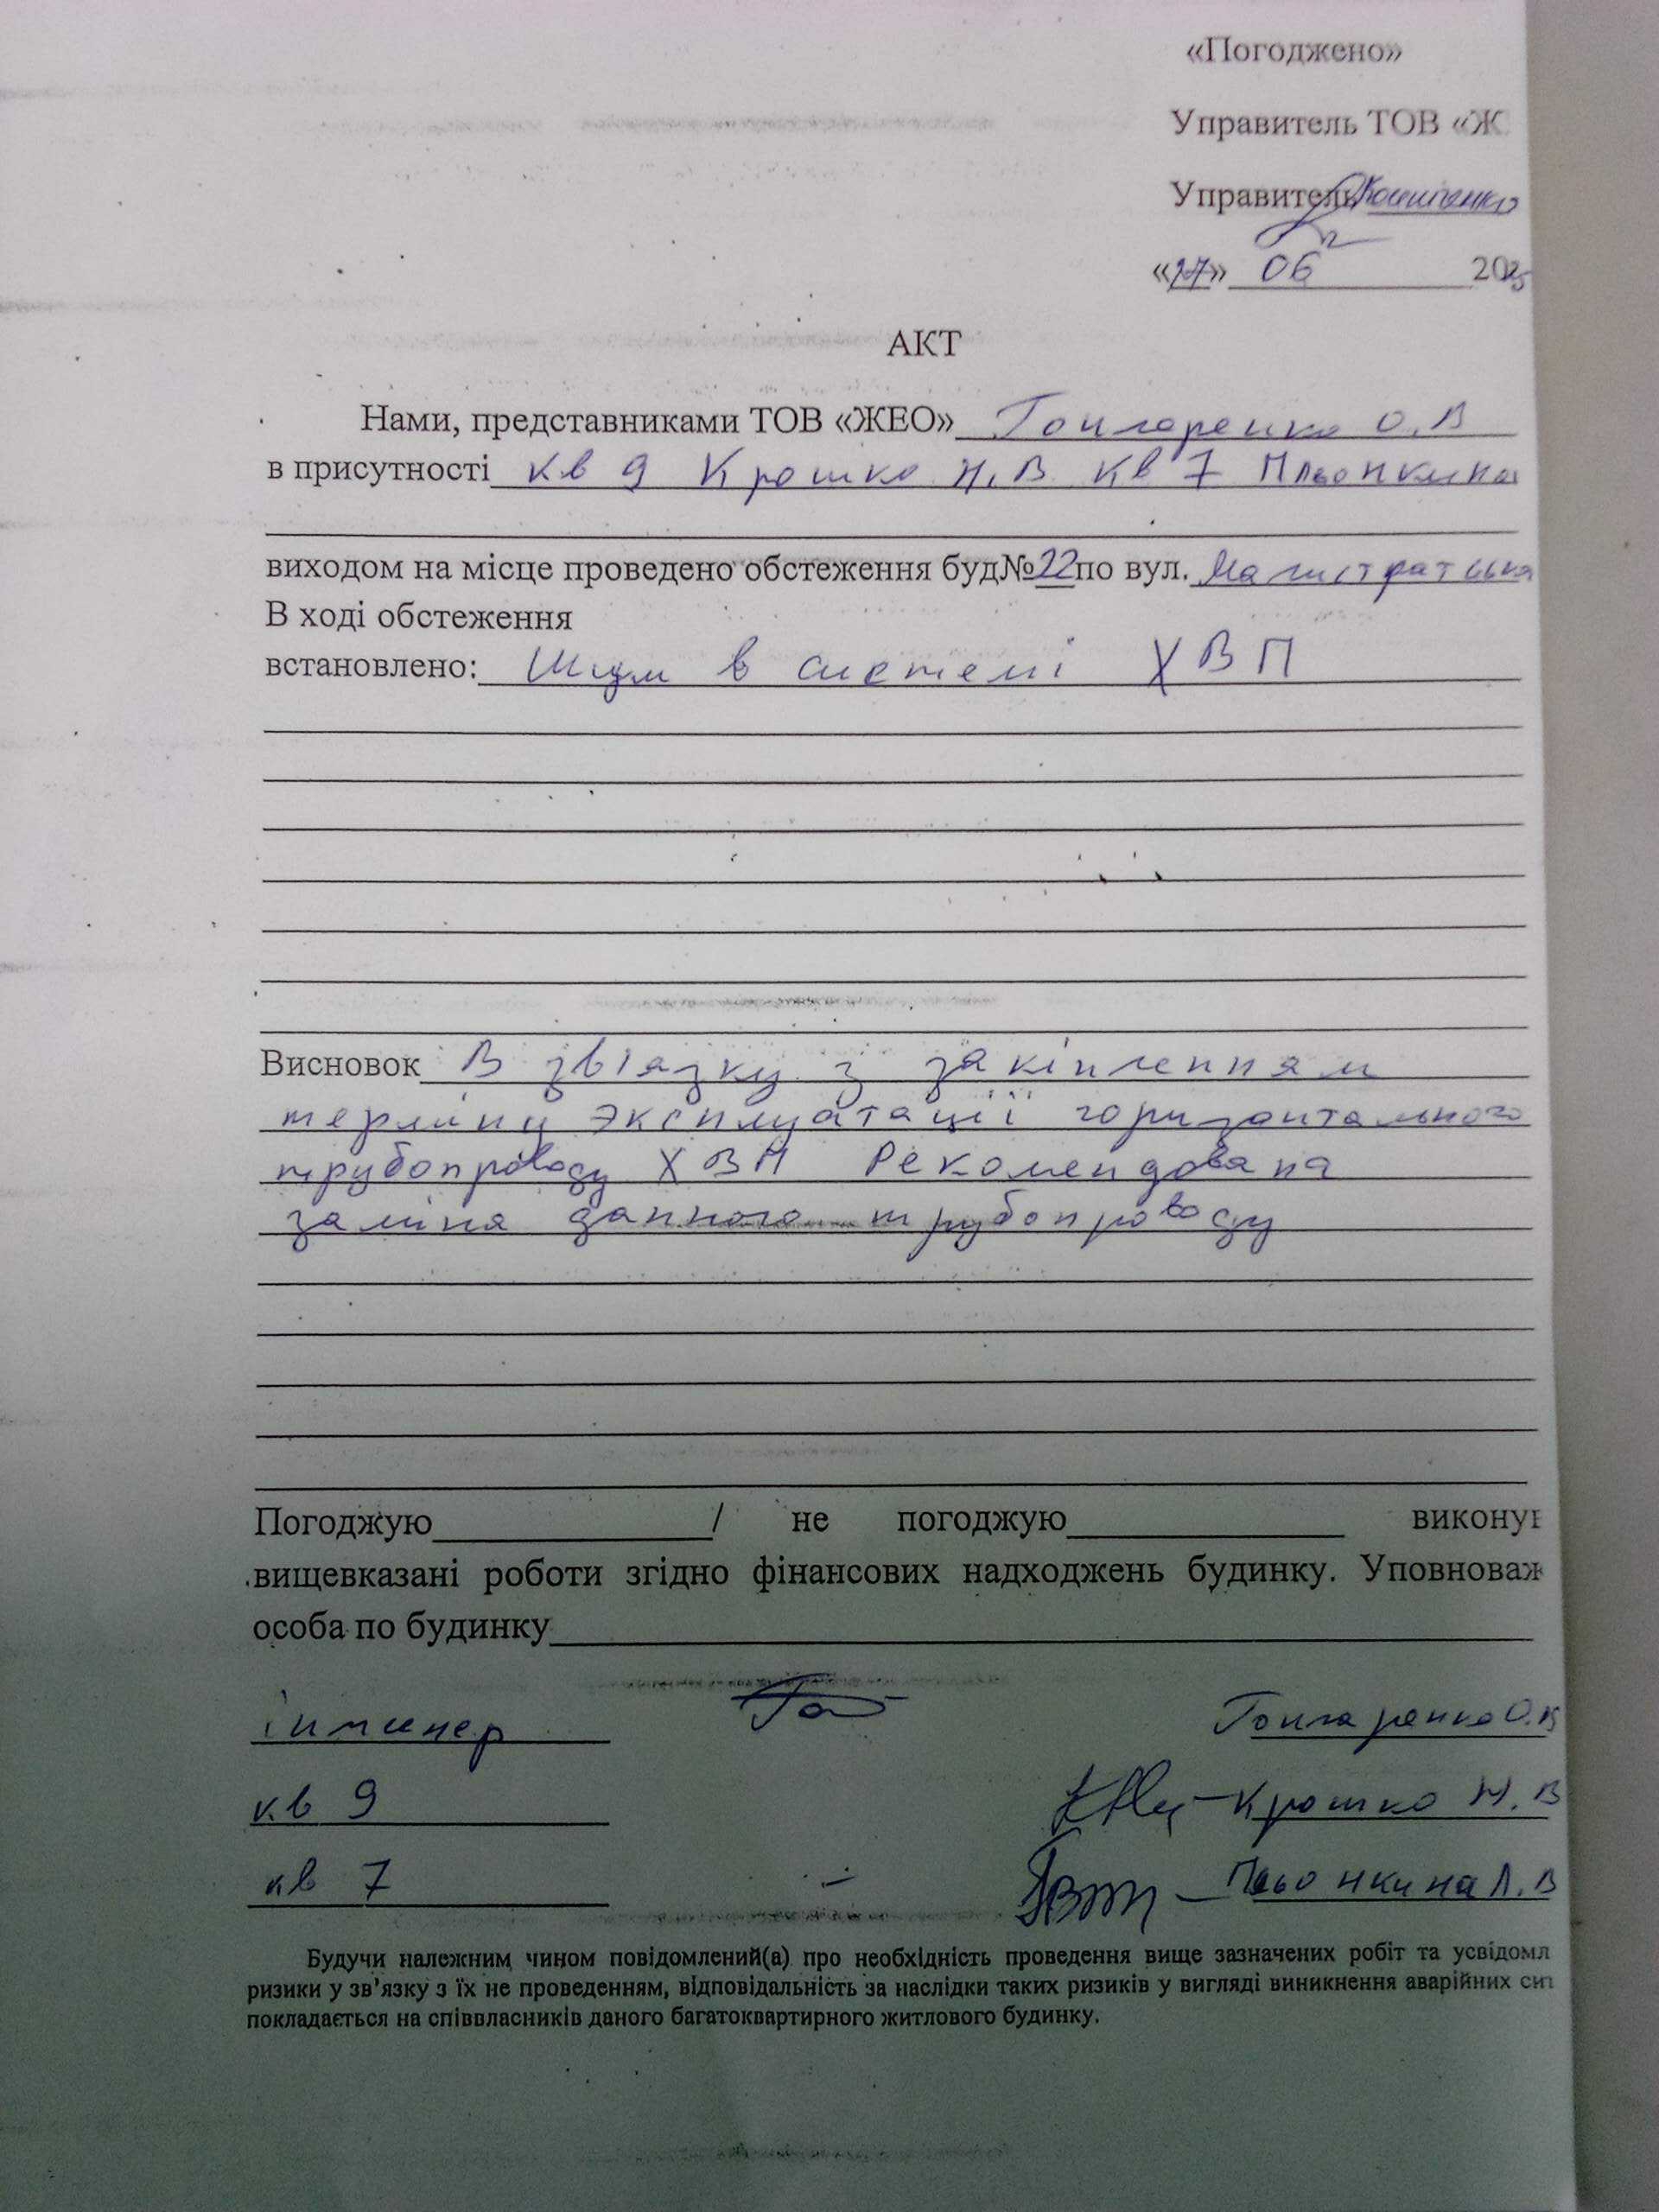 «Погоджено»
Управитель ТОВ «Ж
Управитель
«27» 06 2025
АКТ
Нами, представниками ТОВ «ЖЕО» Гончаренко О.В
в присутності кв 9 Крошко Н.В. кв 7 Пльонкина
виходом на місце проведено обстеження буд№22по вул. Магистратська
В ході обстеження
встановлено: Шум в системі ХВП
Висновок В звʼязку з закінченням
терміну эксплуатації горизонтального
трубопроводу ХВП Рекомендована
заміна данного трубопроводу
Погоджую / не погоджую викону
вищевказані роботи згідно фінансових надходжень будинку. Уповноваж
особа по будинку
інженер Гончаренко О.В
кв 9 Крошко Н.В
кв 7 Пльонкина Л.В
Будучи належним чином повідомлений(а) про необхідність проведення вище зазначених робіт та усвідомл
ризики у зв’язку з їх не проведенням, відповідальність за наслідки таких ризиків у вигляді виникнення аварійних си
покладається на співвласників даного багатоквартирного житлового будинку.